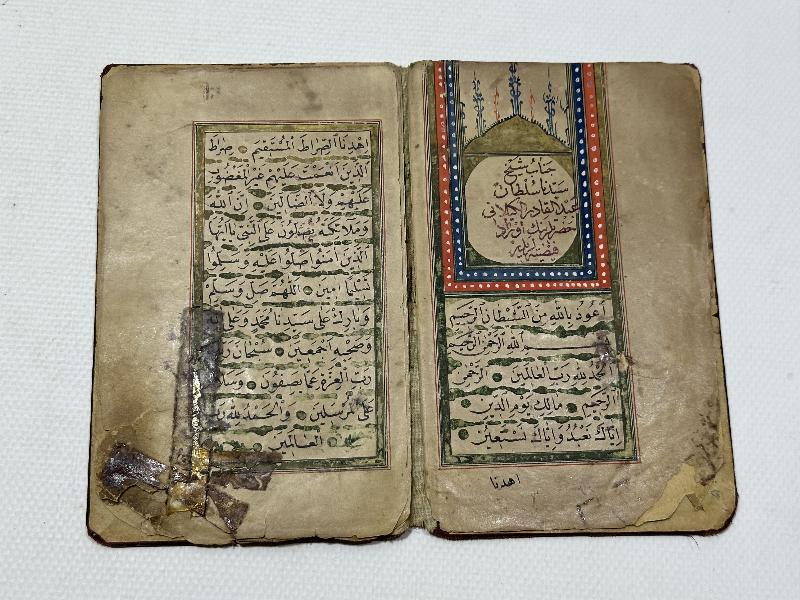 جناب شيخ
سيدنا سلطان
عبد القادر الكيلاني
حضرتلرينك اوراد
اعوذ بالله من الشيطان الرجيم
بسم الله الرحمن الرحيم
الحمد لله رب العالمين الرحمن
الرحيم مالك يوم الدين
اياك نعبد واياك نستعين
اهدنا
اهدنا الصراط المستقيم صراط
الذين انعمت عليهم غير المغضوب
عليهم ولا الضالين ان الله
وملائكته يصلون على النبي يا ايها
الذين امنوا صلوا عليه وسلموا
تسليما امين اللهم صل وسلم
وبارك على سيدنا محمد وعلى
وصحبه اجمعين سبحان
رب العزة عما يصفون وسلام
على المرسلين والحمد لله رب
العالمين